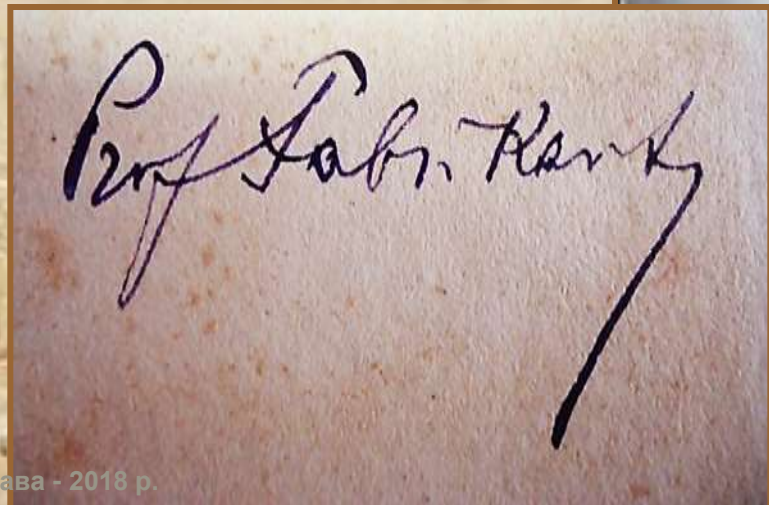 Prof Fabrikant
ава - 2018 р.